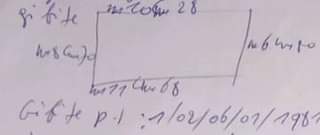 gifite m20cm28
m8cm70 m6cm70
m11cm68
Gifite p.l : 1/02/06/01/1981